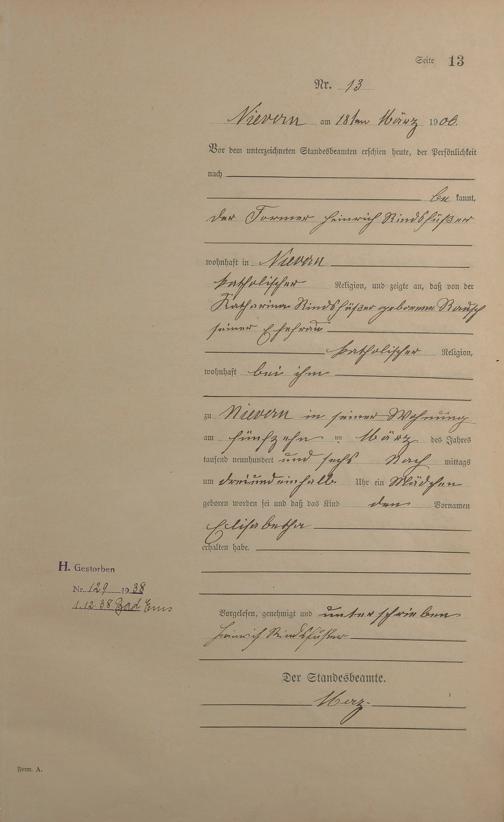 Seite 13
Nr. 13
Nievern am 18ten März 1906.
Vor dem unterzeichneten Standesbeamten erschien heute, der Persönlichkeit
nach
be kannt,
der Former Heinrich Rindsfüßer
wohnhaft in Nievern
katholischer Religion, und zeigte an, daß von der
Katharina Rindsfüßer geborenen Rausch
seiner Ehefrau
katholischer Religion,
wohnhaft bei ihm
zu Nievern in seiner Wohnung
am fünfzehn ten März des Jahres
tausend neunhundert und sechs Nach mittags
um dreiundeinhalb Uhr ein Mädchen
geboren worden sei und daß das Kind den Vornamen
Elisabetha
erhalten habe.
H. Gestorben
Nr. 129 1938
1.12.38 Bad Ems
Vorgelesen, genehmigt und unterschrieben
Heinrich Rindsfüßer
Der Standesbeamte.
Merz.
Form. A.